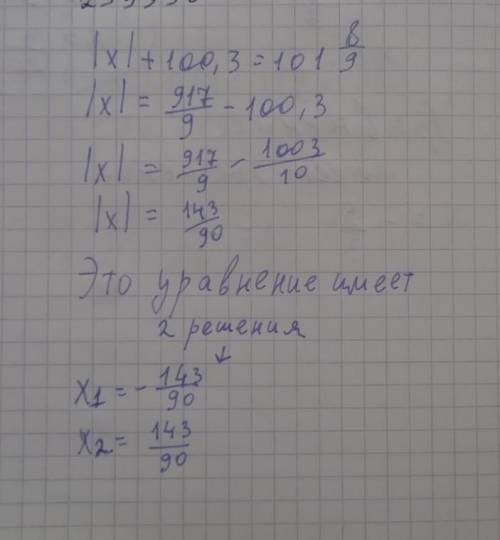 |x| + 100,3 = 101 8/9
|x| = 917/9 - 100,3
|x| = 917/9 - 1003/10
|x| = 143/90
Это уравнение имеет
2 решения
x1 = - 143/90
x2 = 143/90